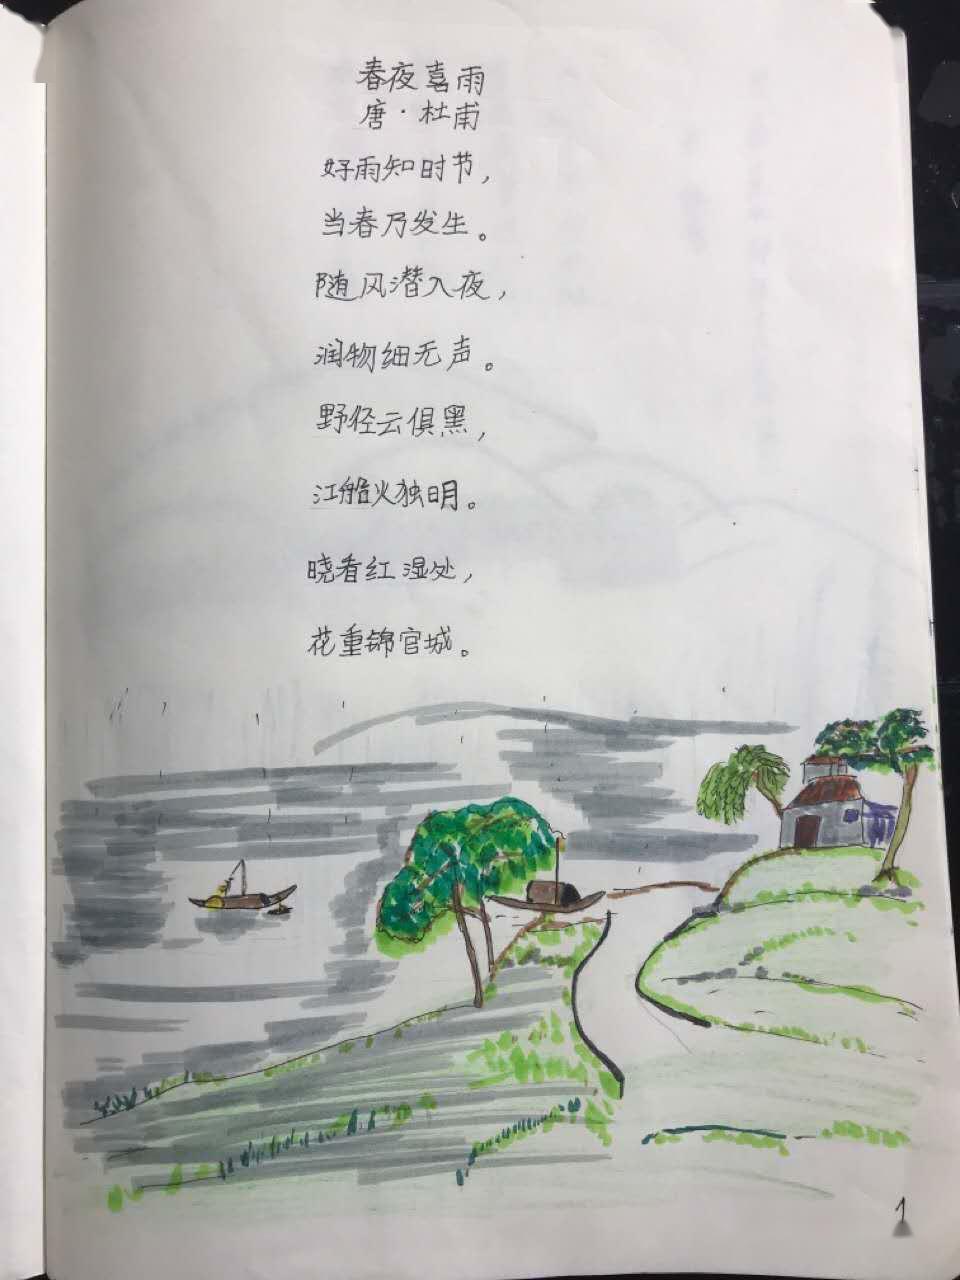 春夜喜雨
唐·杜甫
好雨知时节，
当春乃发生。
随风潜入夜，
润物细无声。
野径云俱黑，
江船火独明。
晓看红湿处，
花重锦官城。
1